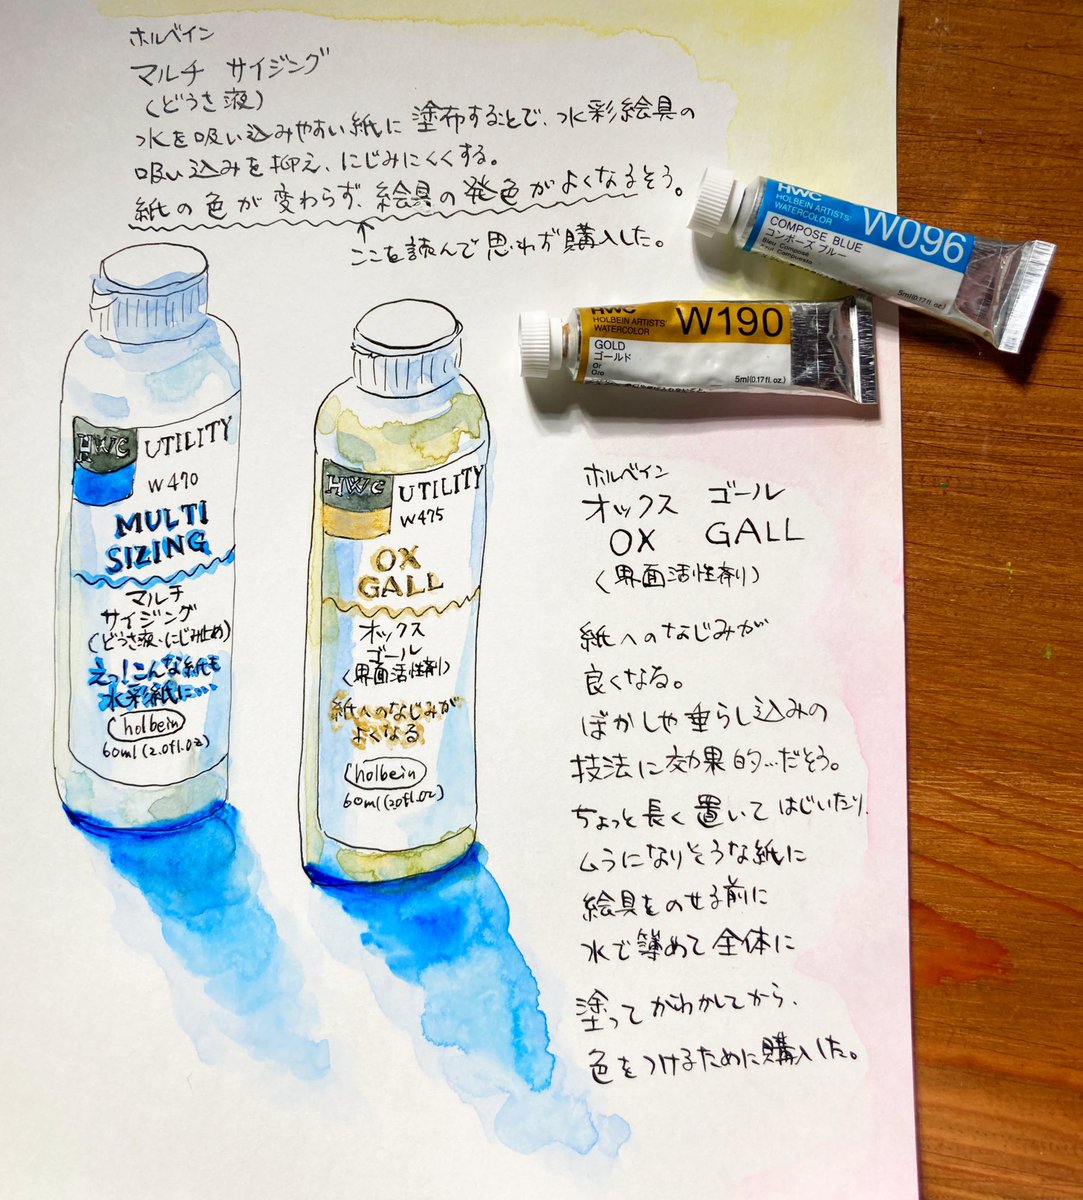 ホルベイン
マルチ サイジング
(どうさ液)
水を吸い込みやすい紙に塗布することで、水彩絵具の
吸い込みを抑え、にじみにくくする。
紙の色が変わらず、絵具の発色がよくなるそう。
↑
ここを読んで思わず購入した。
HWC
HOLBEIN ARTISTS'
WATERCOLOR
W096
COMPOSE BLUE
コンポーズ ブルー
Bleu Composé
Azul Compuesto
5ml(0.17fl.oz.)
HWC
HOLBEIN ARTISTS'
WATERCOLOR
W190
GOLD
ゴールド
Or
Oro
5ml(0.17fl.oz.)
HWC UTILITY
W470
MULTI
SIZING
マルチ
サイジング
(どうさ液・にじみ止め)
えっ!こんな紙も
水彩紙に……
holbein
60ml(2.0fl.oz)
HWC UTILITY
W475
OX
GALL
オックス
ゴール
(界面活性剤)
紙へのなじみが
よくなる
holbein
60ml(2.0fl.oz)
ホルベイン
オックス ゴール
OX GALL
(界面活性剤)
紙へのなじみが
良くなる。
ぼかしや垂らし込みの
技法に効果的…だそう。
ちょっと長く置いてはじいたり、
ムラになりそうな紙に
絵具をのせる前に
水で薄めて全体に
塗ってかわかしてから、
色をつけるために購入した。